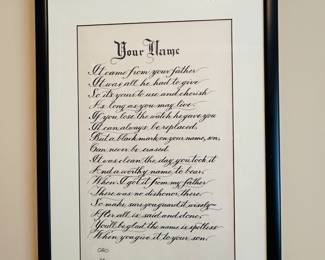 Your Name
It came from your father
It was all he had to give
So it's yours to use and cherish
As long as you may live.
If you lose the watch he gave you
It can always be replaced,
But a black mark on your name, son,
Can never be erased.
It was clean the day you took it
And a worthy name to bear.
When I got it from my father
There was no dishonor there.
So make sure you guard it wisely—
After all is said and done,
You'll be glad the name is spotless
When you give it to your son.